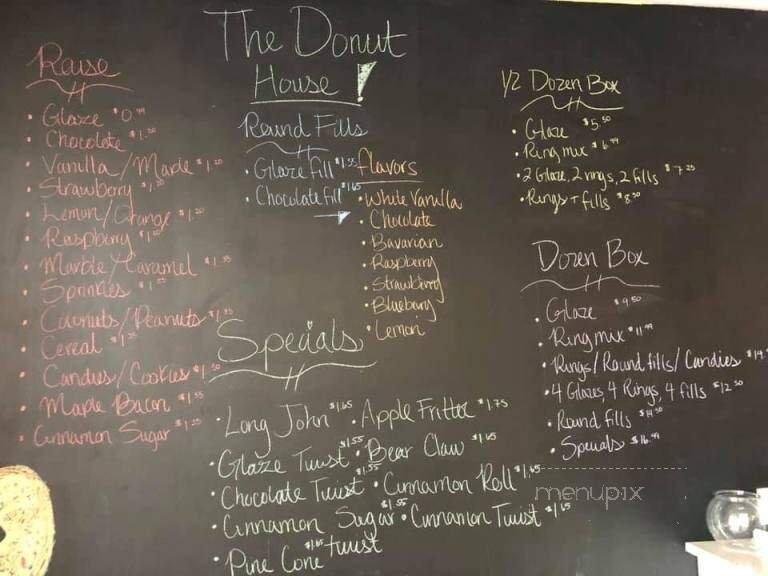 The Donut
House!
Raise
• Glaze $0.99
• Chocolate $1.20
• Vanilla/Maple $1.20
• Strawberry $1.20
• Lemon/Orange $1.20
• Raspberry
• Marble/Caramel $1.35
• Sprinkles
• Coconuts/Peanuts $1.35
• Cereal $1.35
• Candies/Cookies $1.50
• Maple Bacon $1.55
• Cinnamon Sugar $1.25
Round Fills
• Glaze fill $1.55
• Chocolate fill $1.65
flavors
• White Vanilla
• Chocolate
• Bavarian
• Raspberry
• Strawberry
• Blueberry
• Lemon
Specials
• Long John $1.65 • Apple Fritter $1.75
• Glaze Twist $1.55 • Bear Claw $1.65
• Chocolate Twist $1.55 • Cinnamon Roll $1.65
• Cinnamon Sugar $1.55 • Cinnamon Twist $1.65
• Pine Cone $1.65 twist
1/2 Dozen Box
• Glaze $5.50
• Ring mix $6.99
• 2 Glaze, 2 rings, 2 fills $7.25
• Rings + fills $8.50
Dozen Box
• Glaze $9.50
• Ring mix $11.99
• Rings/Round fills/Candies
• 4 Glazes, 4 Rings, 4 fills $12.50
• Round fills $14.50
• Specials $16.99
menupix